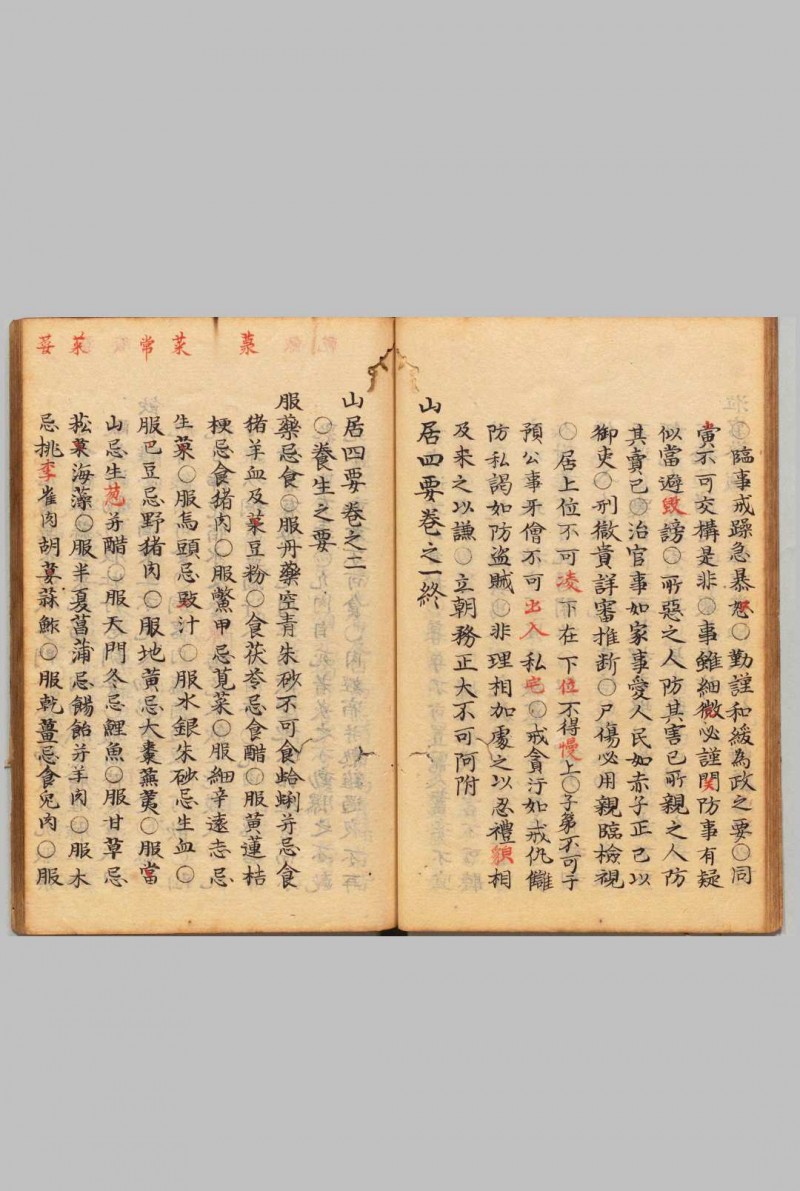 ○臨事戒躁急暴怒○勤謹和緩為政之要○同
黨不可交構是非○事雖細微必謹関防事有疑
似當避毀謗○所惡之人防其害已所親之人防
其賣己○治官事如家事愛人民如赤子正己以
御吏○刑獄貴詳審推斷○尸傷必用親臨檢視
○居上位不可凌下在下位不得慢上○子第不可于
預公事牙儈不可出入私宅○戒貪汙如戒仇讎
防私謁如防盜賊○非理相加處之以忍禮貌相
及來之以謙○立朝務正大不可阿附
山居四要卷之一終
山居四要卷之二
○養生之要
服藥忌食○服丹藥空青朱砂不可食蛤蜊并忌食
猪羊血及菉豆粉○食茯苓忌食醋○服黃蓮桔
梗忌食猪肉○服鱉甲忌莧菜○服細辛遠志忌
生菜○服烏頭忌豉汁○服水銀朱砂忌生血○
服巴豆忌野猪肉○服地黃忌大棗蕪荑○服當
山忌生葱并醋○服天門冬忌鯉魚○服甘草忌
菘菜海藻○服半夏菖蒲忌餳飴并羊肉○服木
忌挑李雀肉胡荽蒜鮓○服乾薑忌食兔肉○服
菉
菜
常
菜
荽